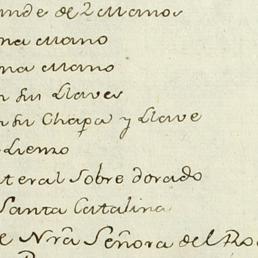 de de 2 Manos
na Mano
na Mano
n su Llaves
n su Chapa y Llave
Lienzo
teral sobre dorado
Santa Catalina
e Nrã Señora del Ro